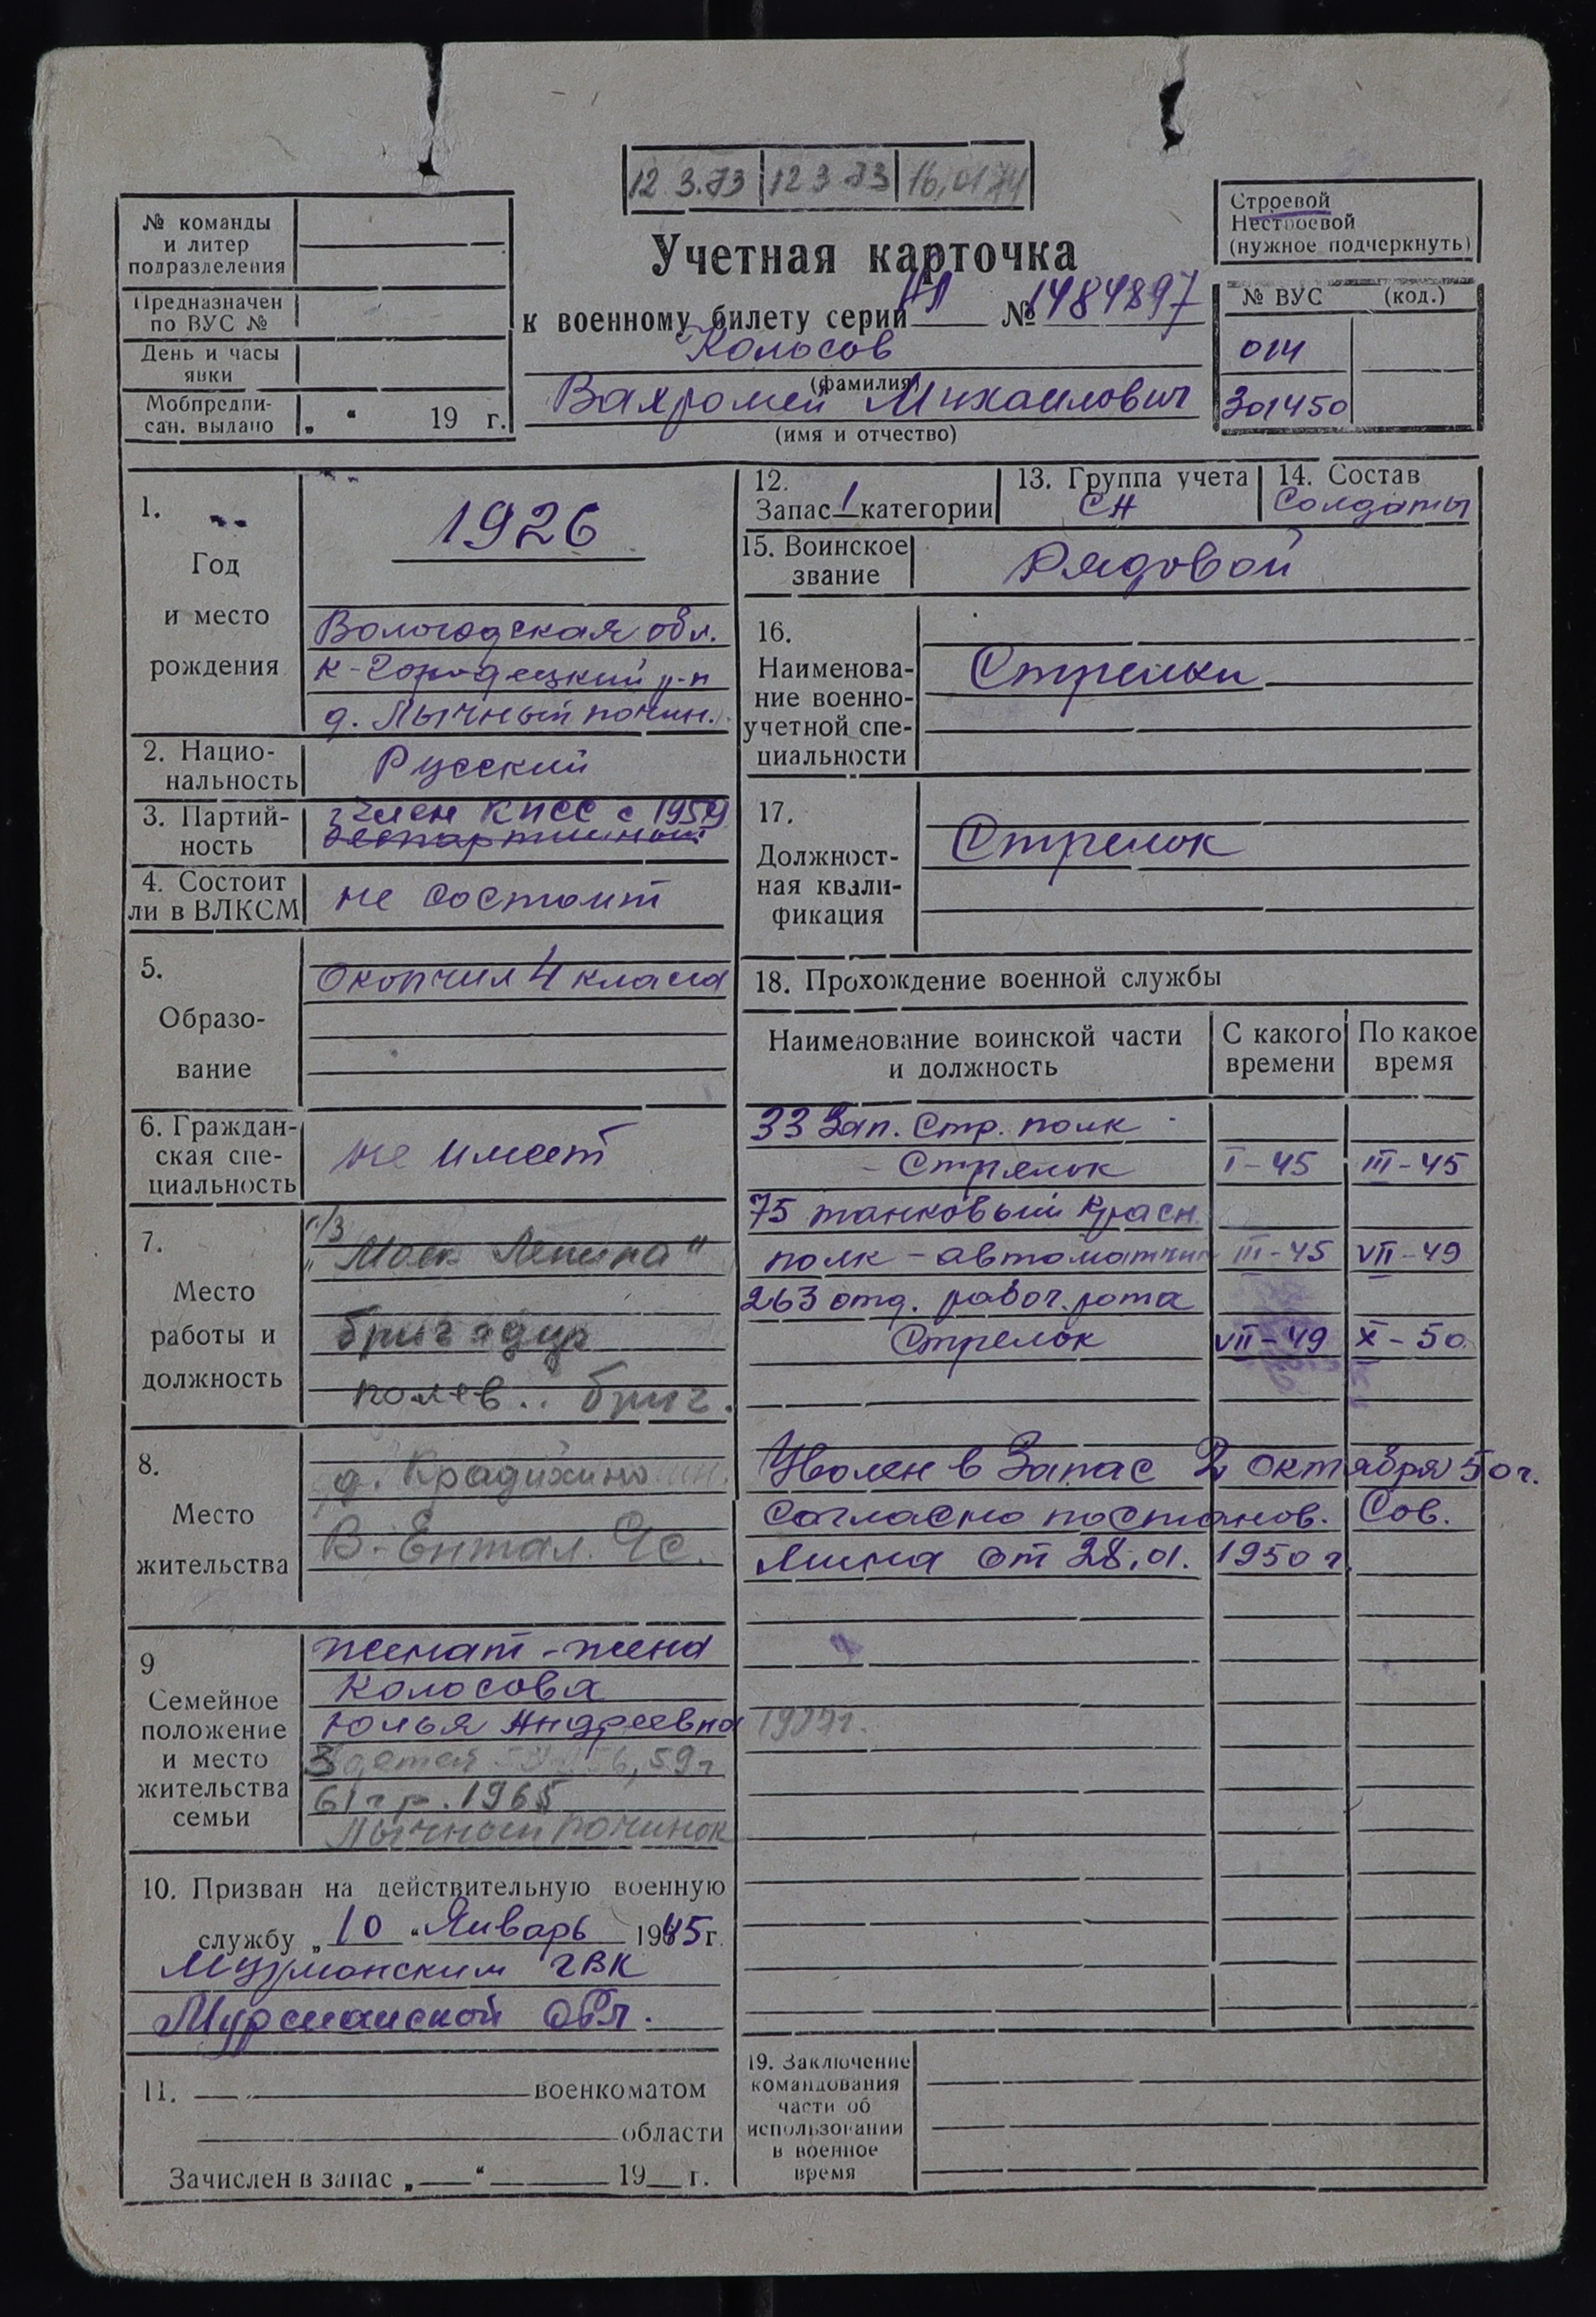 12.3.73 12 3 73 16.01 74
№ команды
и литер
подразделения
Предназначен
по ВУС №
День и часы
явки
Мобпредпи-
сан. выдано „ “ 19 г.
Строевой
Нестроевой
(нужное подчеркнуть)
Учетная карточка
к военному билету серии НЛ № 1484897
Колосов
(фамилия)
Вахромей Михаилович
(имя и отчество)
№ ВУС (код.)
014
301450
1.
Год
и место
рождения
1926
Вологодская обл.
К-Городецкий р-н
д. Лычный почин.
2. Нацио-
нальность
Русский
3. Партий-
ность
член КПСС с 1959
беспартийный
4. Состоит
ли в ВЛКСМ
не состоит
5.
Образо-
вание
Окончил 4 класса
6. Граждан-
ская спе-
циальность
не имеет
7.
Место
работы и
должность
Ленина"
бригадир
полев.. бриг.
8.
Место
жительства
д. Крадихино
В-Ентал. Чс.
9
Семейное
положение
и место
жительства
семьи
женат - жена
Колосова
Юлья Андреевна
3 детей 59г
61 г р. 1965
Лычный починок
10. Призван на действительную военную
службу „ 10 “ Январь 1945 г.
Мурманским ГВК
Мурманской обл.
11. военкоматом
области
Зачислен в запас „ “ 19 г.
12.
Запас 1 категории
13. Группа учета
СН
14. Состав
Солдаты
15. Воинское
звание
Рядовой
16.
Наименова-
ние военно-
учетной спе-
циальности
Стрелки
17.
Должност-
ная квали-
фикация
Стрелок
18. Прохождение военной службы
Наименование воинской части
и должность
С какого
времени
По какое
время
33 Зап. Стр. полк
- Стрелок I-45 III-45
75 танковый Красн.
полк - автоматчик III-45 VII-49
263 отд. рабоч. рота
Стрелок VII-49 X-50
Уволен в Запас 2 октября 50г.
Согласно постанов. Сов.
Мина от 28.01. 1950 г.
19. Заключение
командования
части об
использовании
в военное
время